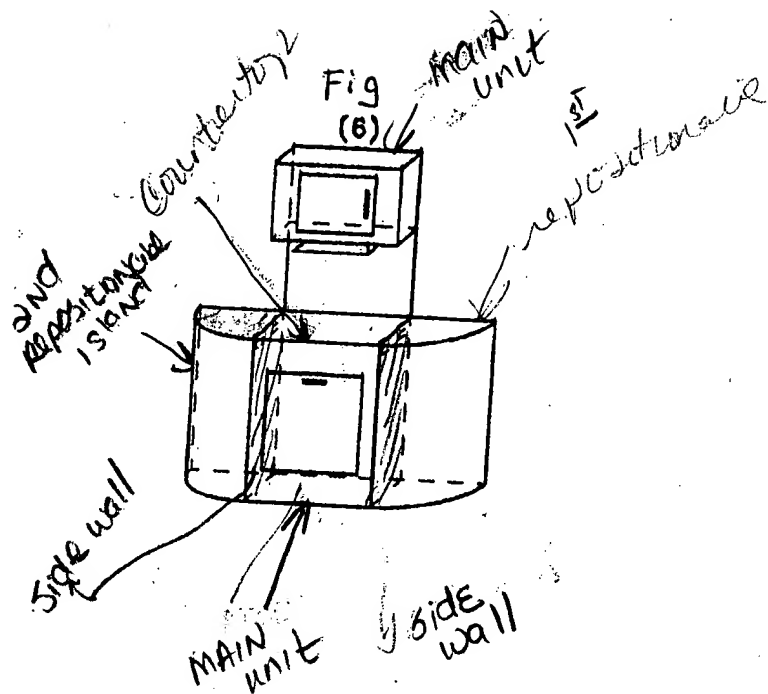 Fig
(6)
main
unit
1st
repositionable
Countertop
2nd
repositionable
island
Side wall
MAIN
unit
side
wall